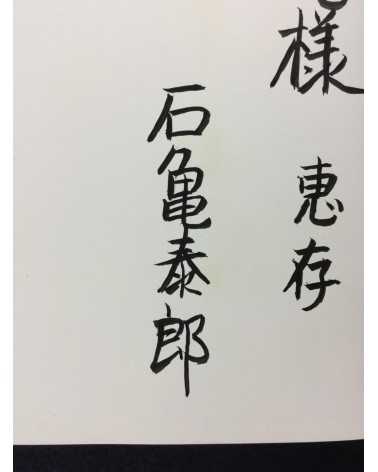 様 恵存
石亀泰郎